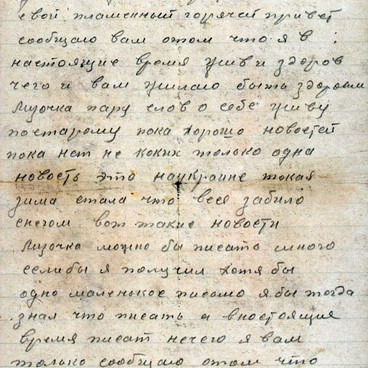 свой пламенный горячей привет
сообщаю вам отом что я в
настоящие время жив и здоров
чего и вам жилаю быть здоровым
Лизочка пару слов о себе живу
постарому пока хорошо новостей
пока нет не коких только одна
новость это наукраине токая
зима стала что всё забило
снегом вот такие новости
Лизочка можно бы писать много
еслибы я получил хотя бы
одно маленькое письмо я бы тогда
знал что писать а внастоящия
время писат нечего я вам
только сообщаю отом что